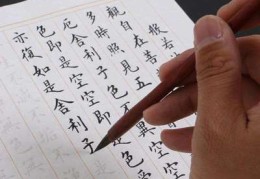 般若
觀自在菩
多時照見五
厄舍利子色不異空
色即是空空即是色受
亦復如是舍利子